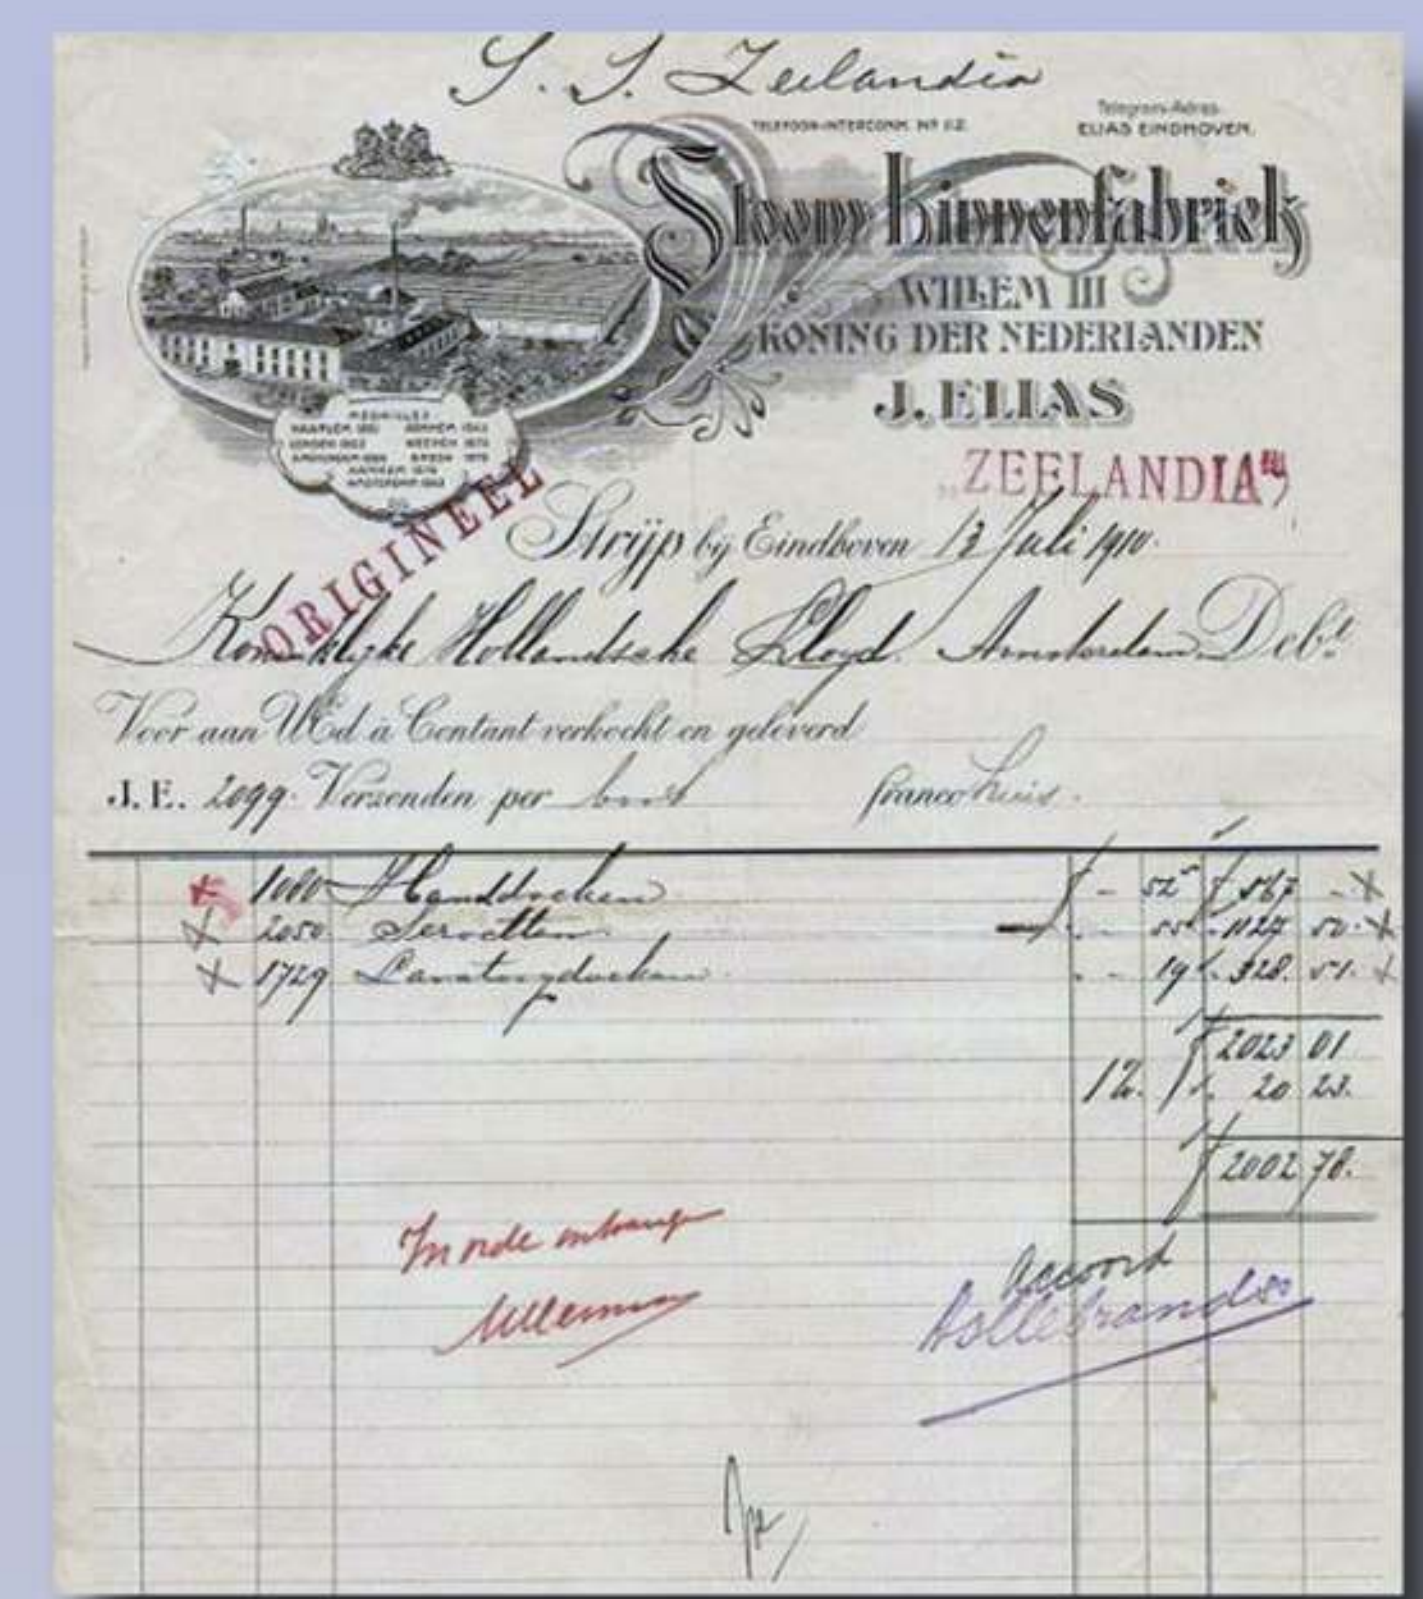 S. S. Zeelandia
TELEFOON-INTERCOMM. Nº 112.
Telegram-Adres.
ELIAS EINDHOVEN.
Stoom Linnenfabriek
WILLEM III
KONING DER NEDERLANDEN
J. ELIAS
MEDAILLES
"ZEELANDIA"
ORIGINEEL
Strijp bij Eindhoven 13 Juli 1910.
Koninklijke Hollandsche Lloyd. Amsterdam Debt.
Voor aan UEd à Contant verkocht en geleverd
J. E. 2099. Verzenden per boot franco huis.
1080 Handdoeken ƒ - 52⁵ ƒ 567 -
2050 Servetten - 55 1127 50.
1729 Lavatorydoeken - 19 328. 51.
ƒ 2023 01
1%. 20 23.
ƒ 2002 78.
In orde ontvangen
Accoord